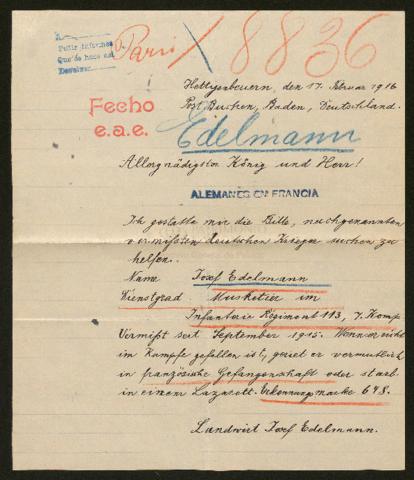 A
Pedir informes
Que de hace est
Paris / 8836
Hettigenbeuern, den 17. Februar 1916
Post Buchen, Baden, Deutschland.
Fecho
e.a.e.
Edelmann
Allergnädigster König und Herr!
ALEMANES EN FRANCIA
Ich gestatte mir die Bitte, nachgenannten
vermissten deutschen Krieger suchen zu
helfen.
Name Josef Edelmann
Dienstgrad Musketier im
Infanterie Regiment 113, 7. Komp
Vermißt seit September 1915. Wenn er nicht
im Kampfe gefallen ist, geriet er vermutlich
in französische Gefangenschaft oder starb
in einem Lazarett. Erkennungsmarke 648.
Landwirt Josef Edelmann.